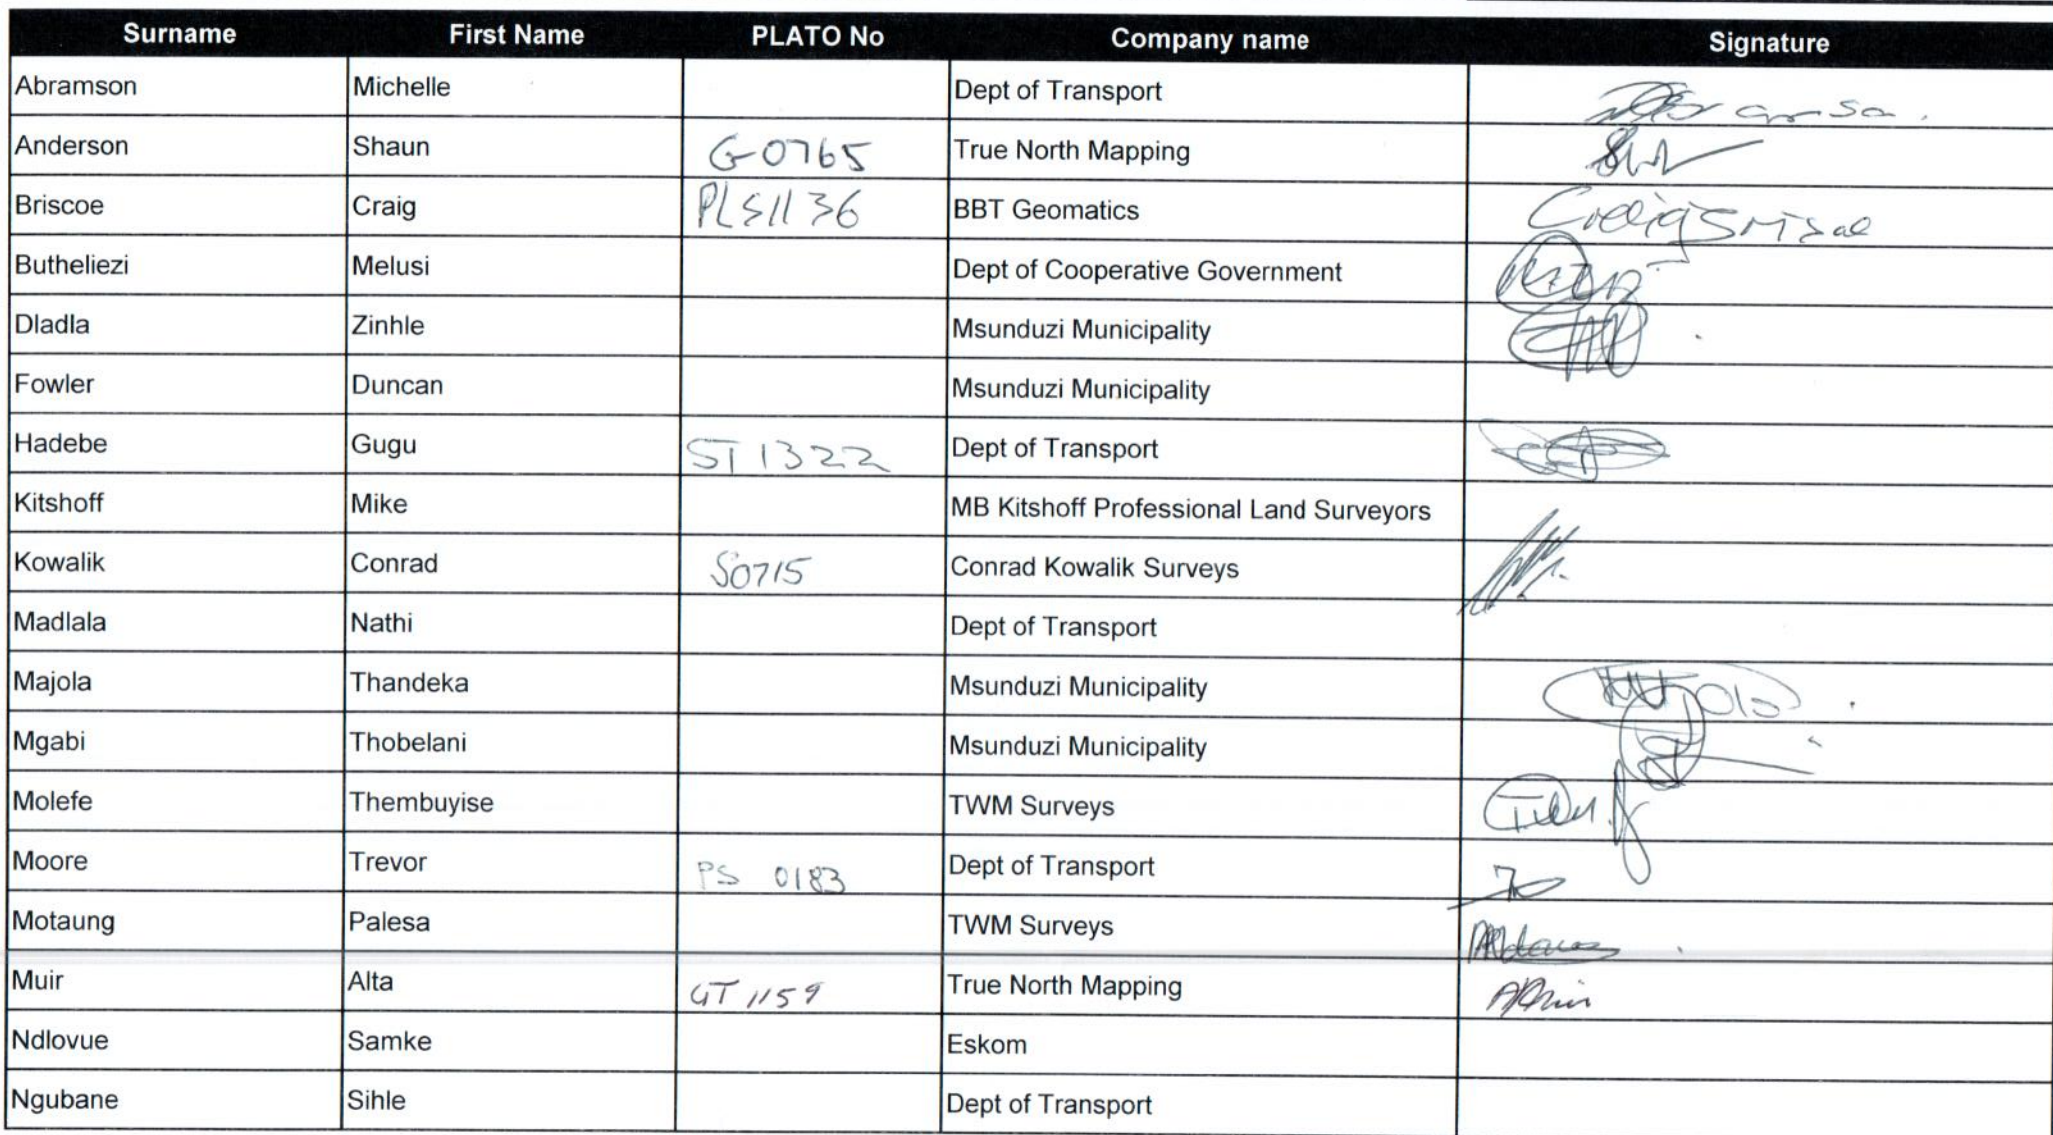 Surname First Name PLATO No Company name Signature
Abramson Michelle Dept of Transport
Anderson Shaun G-0765 True North Mapping
Briscoe Craig PLS1136 BBT Geomatics
Butheliezi Melusi Dept of Cooperative Government
Dladla Zinhle Msunduzi Municipality
Fowler Duncan Msunduzi Municipality
Hadebe Gugu ST1322 Dept of Transport
Kitshoff Mike MB Kitshoff Professional Land Surveyors
Kowalik Conrad S0715 Conrad Kowalik Surveys
Madlala Nathi Dept of Transport
Majola Thandeka Msunduzi Municipality
Mgabi Thobelani Msunduzi Municipality
Molefe Thembuyise TWM Surveys
Moore Trevor PS 0183 Dept of Transport
Motaung Palesa TWM Surveys
Muir Alta GT 1159 True North Mapping
Ndlovue Samke Eskom
Ngubane Sihle Dept of Transport